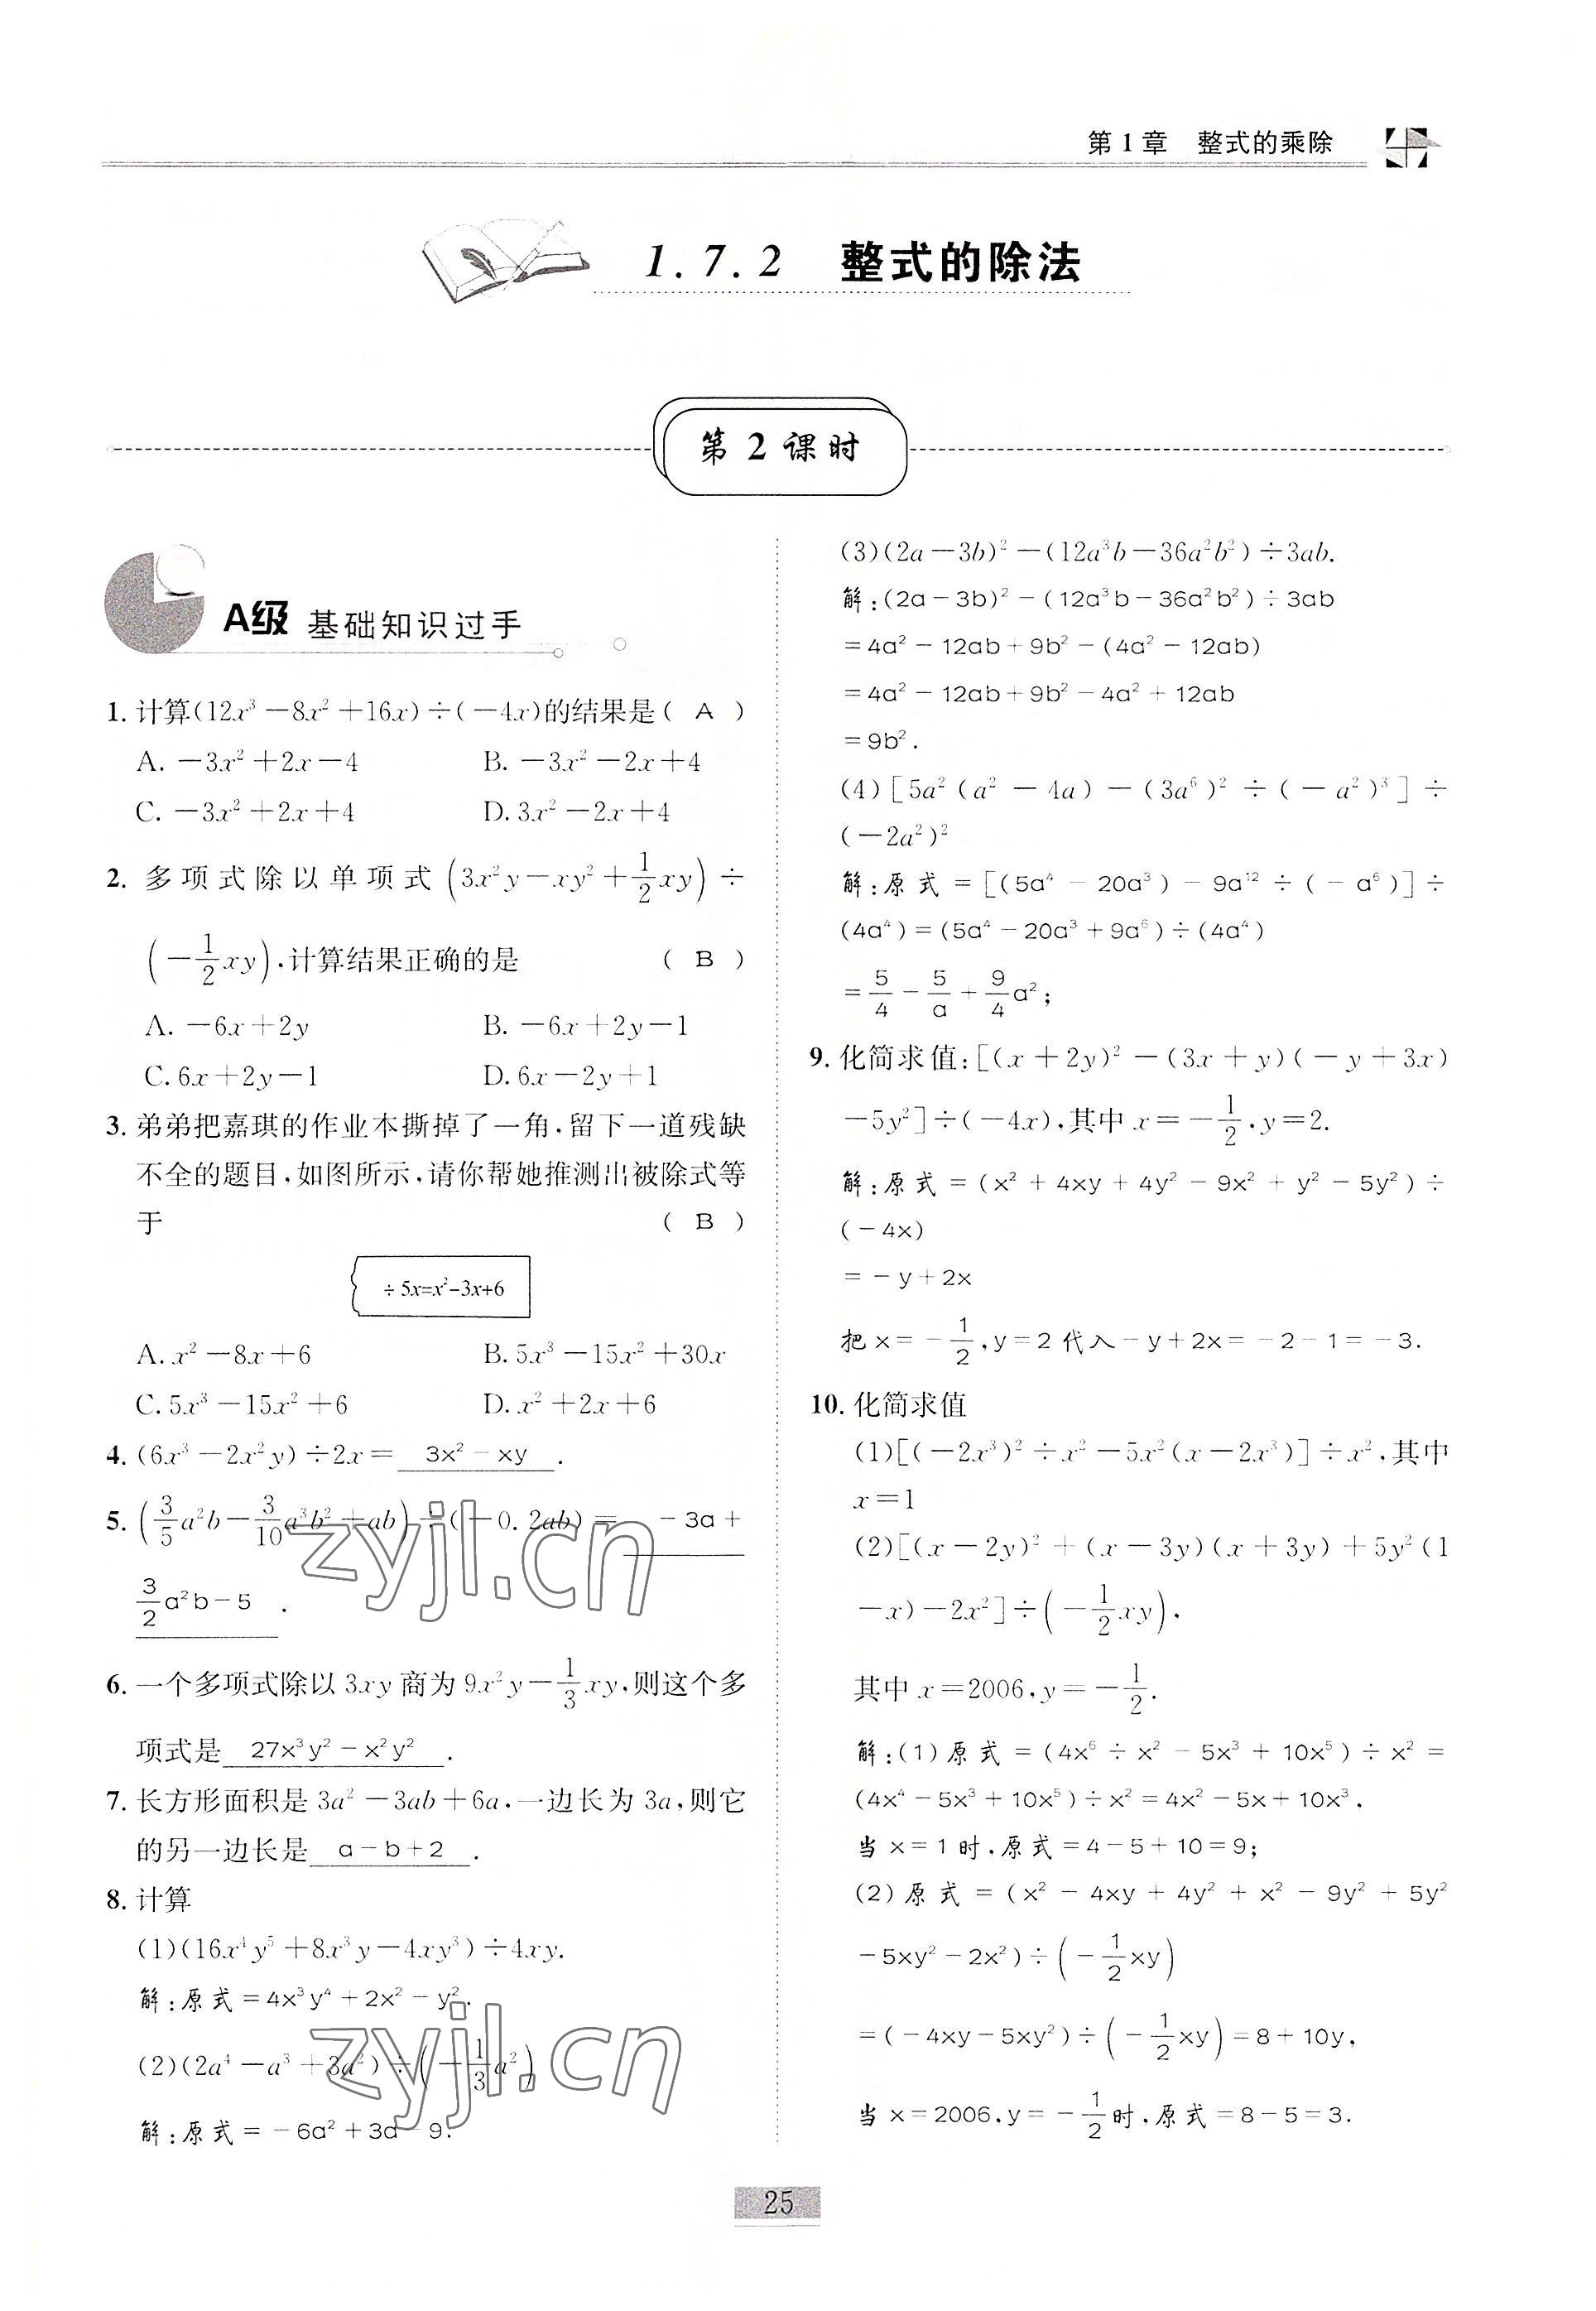 第1章 整式的乘除
1.7.2 整式的除法
第2课时
A级 基础知识过手
1. 计算(12x³-8x²+16x)÷(-4x)的结果是( A )
A. -3x²+2x-4 B. -3x²-2x+4
C. -3x²+2x+4 D. 3x²-2x+4
2. 多项式除以单项式(3x²y-xy²+1/2xy)÷
(-1/2xy),计算结果正确的是 ( B )
A. -6x+2y B. -6x+2y-1
C. 6x+2y-1 D. 6x-2y+1
3. 弟弟把嘉琪的作业本撕掉了一角,留下一道残缺
不全的题目,如图所示,请你帮她推测出被除式等
于 ( B )
÷5x=x²-3x+6
A. x²-8x+6 B. 5x³-15x²+30x
C. 5x³-15x²+6 D. x²+2x+6
4. (6x³-2x²y)÷2x= 3x²-xy .
5. (3/5a²b-3/10a³b²+ab)÷(-0.2ab)= -3a+
3/2a²b-5 .
6. 一个多项式除以3xy商为9x²y-1/3xy,则这个多
项式是 27x³y²-x²y² .
7. 长方形面积是3a²-3ab+6a,一边长为3a,则它
的另一边长是 a-b+2 .
8. 计算
(1)(16x⁴y⁵+8x³y-4xy³)÷4xy.
解:原式=4x³y⁴+2x²-y².
(2)(2a⁴-a³+3a²)÷(-1/3a²)
解:原式=-6a²+3a-9.
(3)(2a-3b)²-(12a³b-36a²b²)÷3ab.
解:(2a-3b)²-(12a³b-36a²b²)÷3ab
=4a²-12ab+9b²-(4a²-12ab)
=4a²-12ab+9b²-4a²+12ab
=9b².
(4)[5a²(a²-4a)-(3a⁶)²÷(-a²)³]÷
(-2a²)²
解:原式=[(5a⁴-20a³)-9a¹²÷(-a⁶)]÷
(4a⁴)=(5a⁴-20a³+9a⁶)÷(4a⁴)
=5/4-5/a+9/4a²;
9. 化简求值:[(x+2y)²-(3x+y)(-y+3x)
-5y²]÷(-4x),其中x=-1/2,y=2.
解:原式=(x²+4xy+4y²-9x²+y²-5y²)÷
(-4x)
=-y+2x
把x=-1/2,y=2代入-y+2x=-2-1=-3.
10. 化简求值
(1)[(-2x³)²÷x²-5x²(x-2x³)]÷x²,其中
x=1
(2)[(x-2y)²+(x-3y)(x+3y)+5y²(1
-x)-2x²]÷(-1/2xy),
其中x=2006,y=-1/2.
解:(1)原式=(4x⁶÷x²-5x³+10x⁵)÷x²=
(4x⁴-5x³+10x⁵)÷x²=4x²-5x+10x³.
当x=1时,原式=4-5+10=9;
(2)原式=(x²-4xy+4y²+x²-9y²+5y²
-5xy²-2x²)÷(-1/2xy)
=(-4xy-5xy²)÷(-1/2xy)=8+10y,
当x=2006,y=-1/2时,原式=8-5=3.
zyjl.cn
zyjl.cn
25